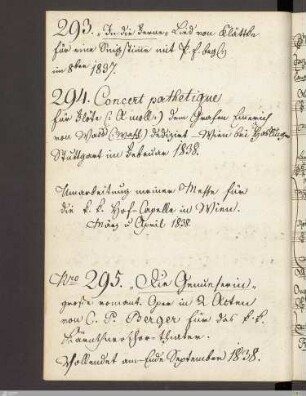 293. „In die Ferne„ Lied von Klättke
für eine Singstimme mit P. f. begl)
im 8ber 1837.
294. Concert pathetique
für Flöte (: A moll :) dem Grafen Emerich
von dedizirt - Wien bei
Stuttgart im Februar 1838.
Umarbeitung meiner Messe für
die k. k. Hof-Capelle in Wien.
März u April 1838
Nro 295. „Die Genueserin„
große romant. Oper in 2 Akten
von C. P. Berger für das k. k.
Kärnthnerthor-theater.
Vollendet am Ende September 1838.